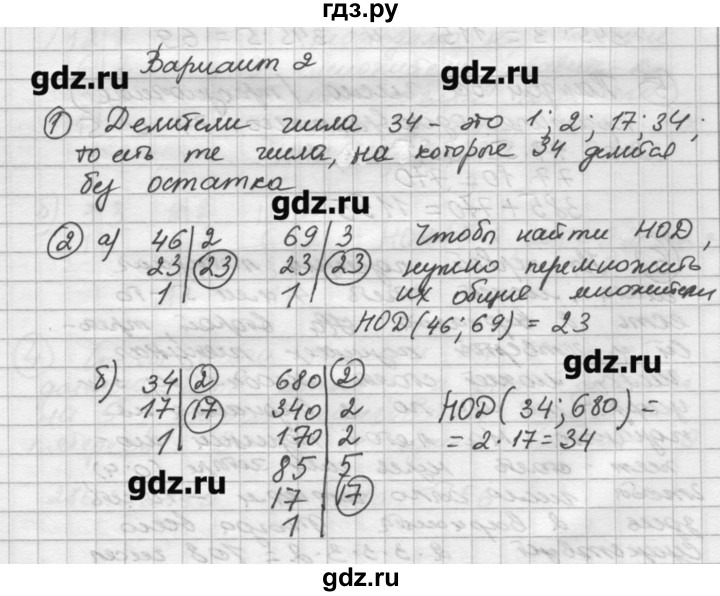 гдз.ру
Вариант 2
gdz.ru
gdz.ru
1 Делители числа 34 - это 1; 2; 17; 34;
то есть те числа, на которые 34 делится
без остатка
gdz.ru
2 а) 46 | 2 69 | 3 Чтобы найти НОД,
23 | 23 23 | 23 нужно перемножить
1 | 1 | их общие множители
НОД(46; 69) = 23
gdz.ru
б) 34 | 2 680 | 2
17 | 17 340 | 2 НОД(34; 680) =
1 | 170 | 2 = 2 · 17 = 34
85 | 5
gdz.ru
17 | 17
1 |
gdz.ru